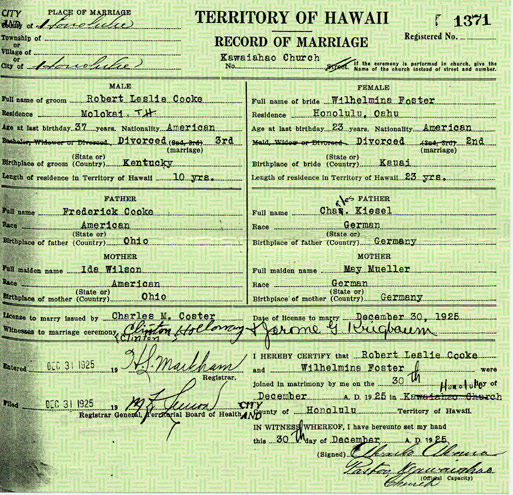 CITY AND
PLACE OF MARRIAGE
County of Honolulu
Township of
or
Village of
or
City of Honolulu
TERRITORY OF HAWAII
RECORD OF MARRIAGE
Kawaiahao Church
No. Street.
1371
Registered No.
If the ceremony is performed in church, give the
Name of the church instead of street and number.
MALE
Full name of groom Robert Leslie Cooke
Residence Molokai, T.H.
Age at last birthday 37 years. Nationality American
Bachelor, Widower or Divorced Divorced (2nd, 3rd) 3rd
(marriage)
(State or)
Birthplace of groom (Country) Kentucky
Length of residence in Territory of Hawaii 10 yrs.
FEMALE
Full name of bride Wilhelmina Foster
Residence Honolulu, Oahu
Age at last birthday 23 years. Nationality American
Maid, Widow or Divorced Divorced (2nd, 3rd) 2nd
(marriage)
(State or)
Birthplace of bride (Country) Kauai
Length of residence in Territory of Hawaii 23 yrs.
FATHER
Full name Frederick Cooke
Race American
(State or)
Birthplace of father (Country) Ohio
FATHER
Full name Chas. Kiesel
Race German
(State or)
Birthplace of father (Country) Germany
MOTHER
Full maiden name Ida Wilson
Race American
(State or)
Birthplace of mother (Country) Ohio
MOTHER
Full maiden name May Mueller
Race German
(State or)
Birthplace of mother (Country) Germany
License to marry issued by Charles M. Coster Date of license to marry December 30, 1925.
Witnesses to marriage ceremony Clinton Holloway & Jerome G. Krigbaum
(Clinton)
Entered DEC 31 1925 19 Markham
Registrar.
Filed DEC 31 1925 19
Registrar General, Territorial Board of Health
I HEREBY CERTIFY that Robert Leslie Cooke
and Wilhelmina Foster were
joined in matrimony by me on the 30th day of
Honolulu
December A. D. 1925 in Kawaiahao Church
CITY AND
County of Honolulu Territory of Hawaii.
IN WITNESS WHEREOF, I have hereunto set my hand
this 30th day of December A. D. 1925.
(Signed) Akana
Pastor Kawaiahao
(Official Capacity)
Church